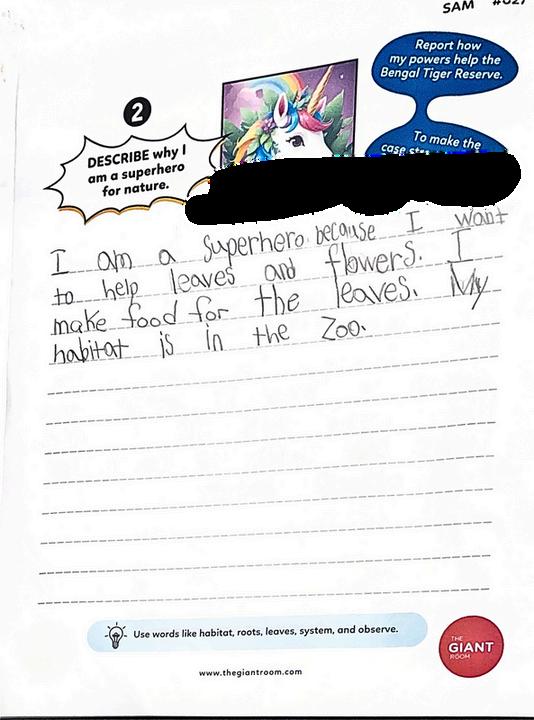 SAM
Report how
my powers help the
Bengal Tiger Reserve.
2
To make the
DESCRIBE why I
am a superhero
for nature.
case
I am a superhero because I want
to help leaves and flowers. I
make food for the leaves. My
habitat is in the Zoo.
Use words like habitat, roots, leaves, system, and observe.
THE
GIANT
ROOM
www.thegiantroom.com